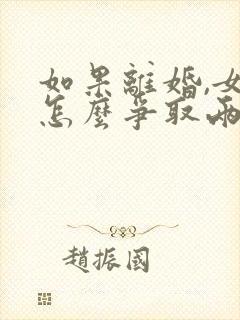 如果離婚,女
怎麼爭取兩
趙振國